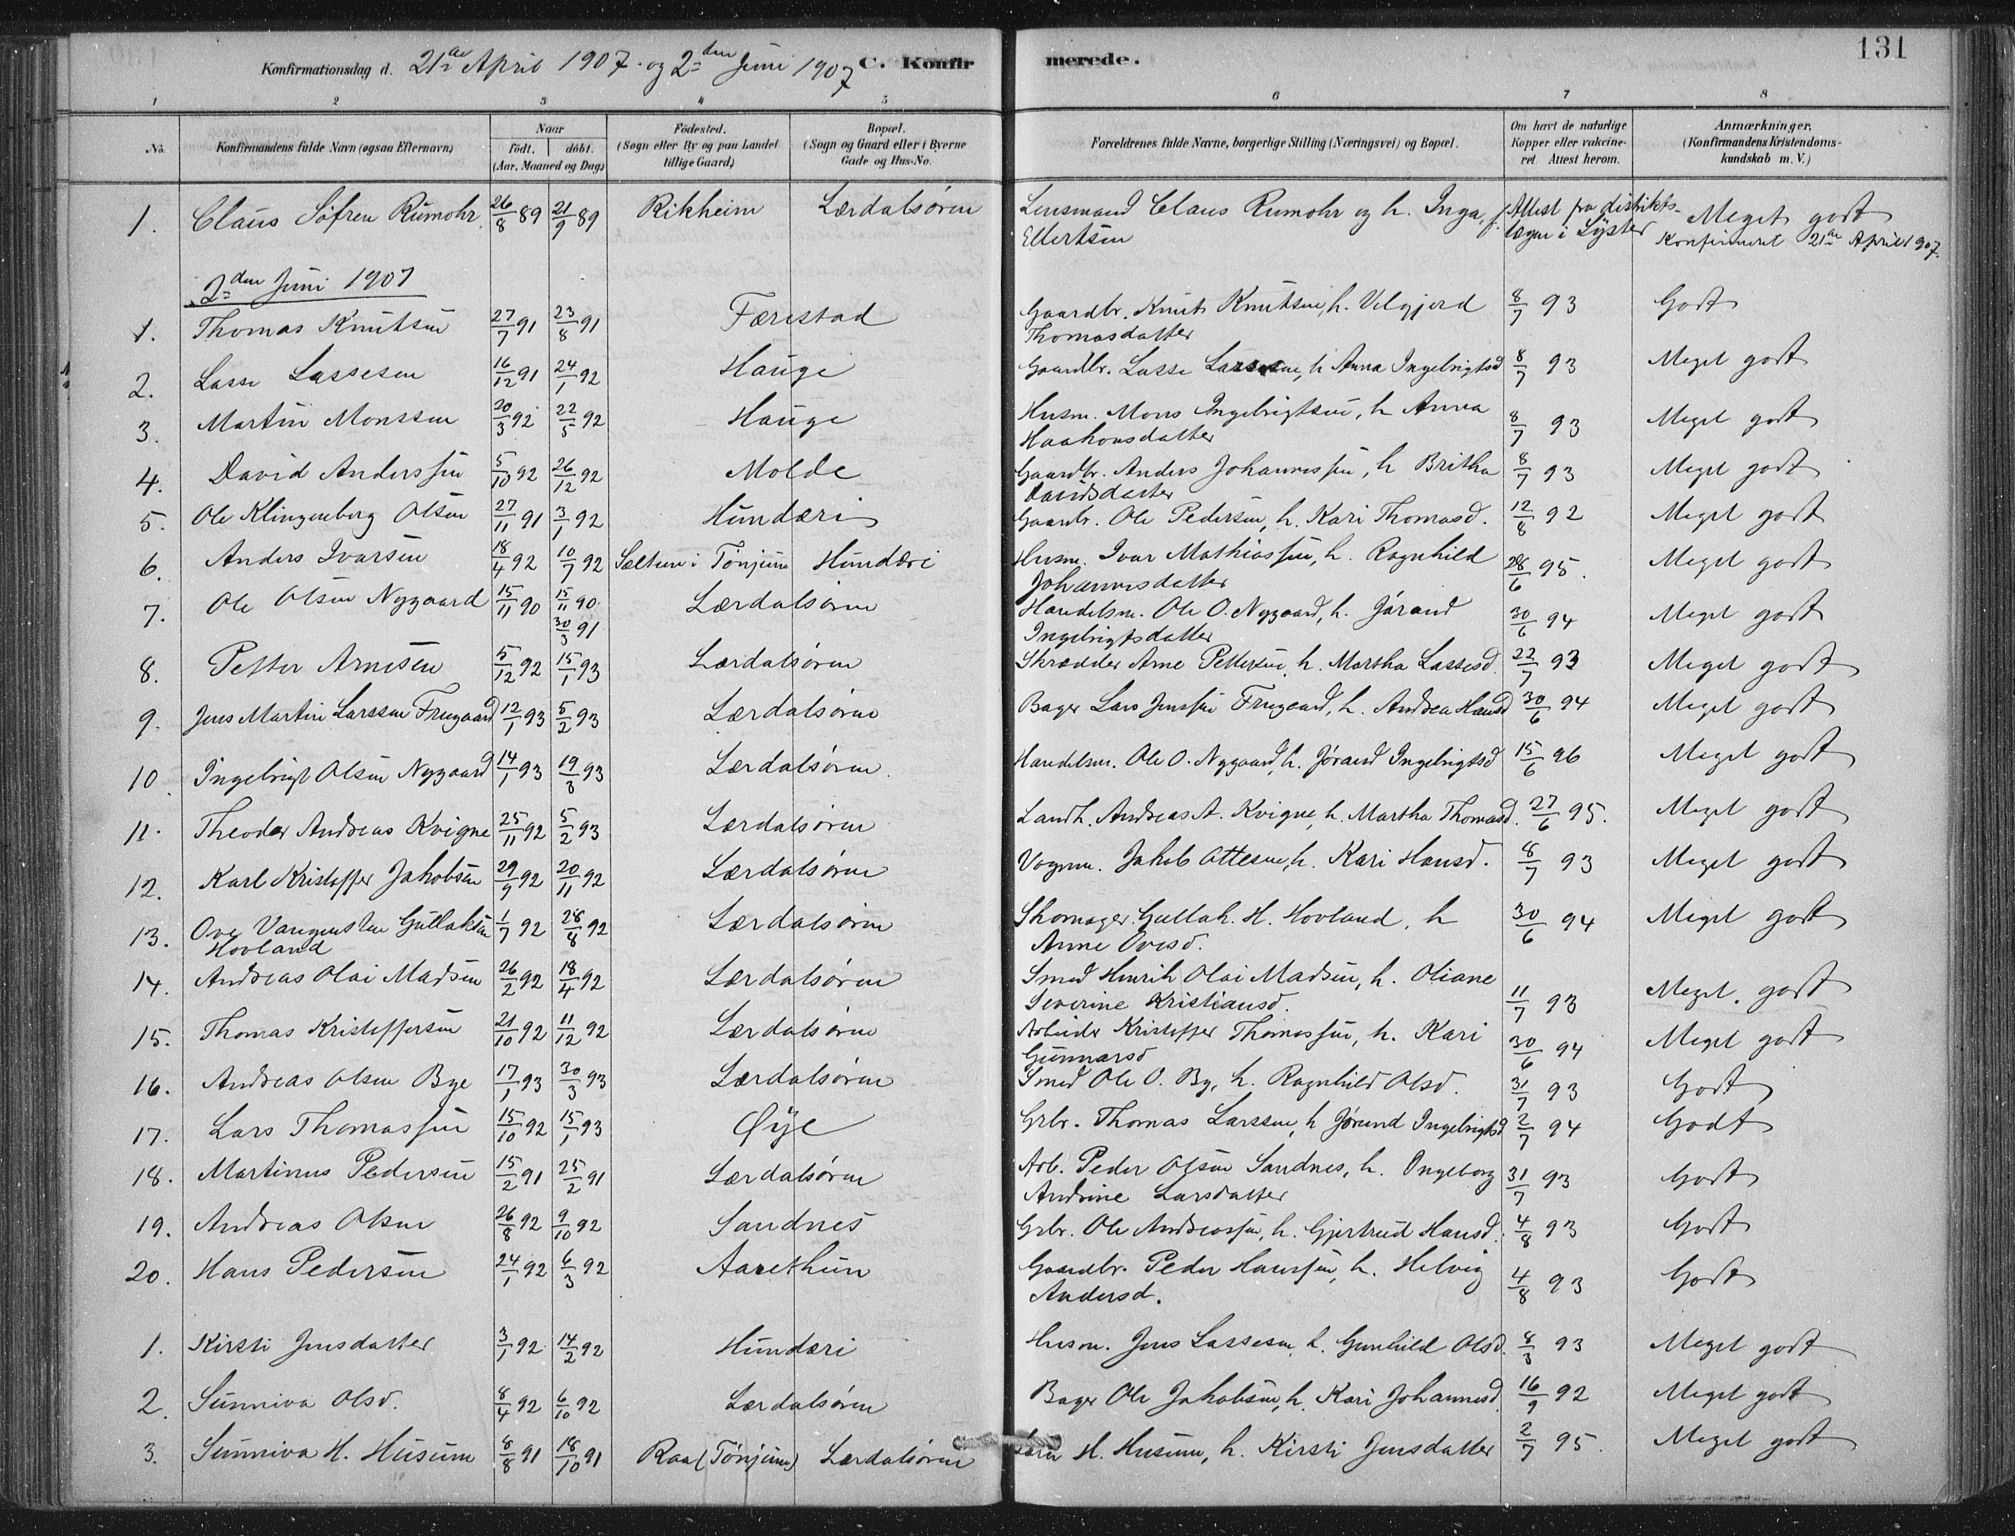 131
Konfirmationsdag d. 21de April 1907 og 2den Juni 1907 C. Konfirmerede.
1 2 3 4 5 6 7 8
No. Konfirmandens fulde Navn (ogsaa Efternavn) Naar født. døbt. (Aar, Maaned og Dag) Fødested. (Sogn eller By og paa Landet tillige Gaard) Bopæl. (Sogn og Gaard eller i Byerne Gade og Hus-No. Forældrenes fulde Navne, borgerlige Stilling (Næringsvei) og Bopæl. Om havt de naturlige Kopper eller vaccineret. Attest herom. Anmærkninger. (Konfirmandens Kristendomskundskab m. V.)
1. Claus Søfren Rumohr 26/8 89 21/9 89 Rikheim Lærdalsøren Lensmand Claus Rumohr og h. Inga, f. Ellertsen Attest fra distriktslægen i Lyster Meget godt Konfirmeret 21de April 1907.
2den Juni 1907
1. Thomas Knutsen 27/7 91 23/8 91 Færestad Gaardbr. Knut Knutsen, h. Velgjerd Thomasdatter 8/7 93 Godt
2. Lasse Lassesen 16/12 91 24/1 92 Hauge Gaardbr. Lasse Lassesen, h. Anna Ingebrigtsd 8/7 93 Meget godt
3. Martin Monssen 20/3 92 22/5 92 Hauge Husm. Mons Ingebrigtsen, h. Anna Haakonsdatter 8/7 93 Meget godt
4. David Anderssen 5/10 92 26/12 92 Molde Gaardbr. Anders Johannessen, h. Britha Davidsdatter 8/7 93 Meget godt
5. Ole Klingenberg Olsen 27/11 91 3/1 92 Hunderi Gaardbr. Ole Pedersen, h. Kari Thomasd. 12/8 92 Meget godt
6. Anders Ivarsen 18/4 92 10/7 92 Sæltun i Tönjum Hunderi Husm. Ivar Mathiassen, h. Ragnhild Johannesdatter 28/6 95. Meget godt
7. Ole Olsen Nygaard 15/11 90 15/11 90 30/3 91 Lærdalsøren Handelsm. Ole O. Nygaard, h. Jørand Ingebrigtsdatter 30/6 94 Meget godt
8. Petter Arnesen 5/12 92 15/1 93 Lærdalsøren Skrædder Arne Pettersen, h. Martha Lassesd. 22/7 93 Meget godt
9. Jens Martin Larssen Frugaard 12/1 93 5/2 93 Lærdalsøren Bager Lars Jenssen Frugaard, h. Andrea Hansd 30/6 94 Meget godt
10. Ingebrigt Olsen Nygaard 14/1 93 19/3 93 Lærdalsøren Handelsm. Ole O. Nygaard, h. Jørand Ingebrigtsd 15/6 96 Meget godt
11. Theodor Andreas Kvigne 25/11 92 5/2 93 Lærdalsøren Landh. Andreas A. Kvigne, h. Martha Thomasd. 27/6 95. Meget godt
12. Karl Kristoffer Jakobsen 29/9 92 20/11 92 Lærdalsøren Vognm. Jakob Ottesen, h. Kari Hansd. 8/7 93 Meget godt
13. Ove Vangensten Gullaksen Hovland 1/7 92 28/8 92 Lærdalsøren Skomager Gullak H. Hovland, h. Anne Ovesd. 30/6 94 Meget godt
14. Andreas Olai Madsen 26/2 92 18/4 92 Lærdalsøren Smed Henrik Olai Madsen, h. Oliane Severine Kristiansd. 11/7 93 Meget godt
15. Thomas Kristoffersen 21/10 92 11/12 92 Lærdalsøren Arbeider Kristoffer Thomassen, h. Kari Gunnarsd 30/6 94 Meget godt
16. Andreas Olsen Bye 17/1 93 30/3 93 Lærdalsøren Smed Ole O. By, h. Ragnhild Olsd. 31/7 93 Godt
17. Lars Thomassen 15/10 92 15/1 93 Øye Grbr. Thomas Larssen, h. Jørund Ingebrigtsd 2/7 94 Godt
18. Martinus Pedersen 15/2 91 25/2 91 Lærdalsøren Arb. Peder Olsen Sandnes, h. Ingeborg Andrine Larsdatter 31/7 93 Godt
19. Andreas Olsen 26/8 92 9/10 92 Sandnes Grbr. Ole Andreassen, h. Gjertrud Hansd. 4/8 93 Godt
20. Hans Pedersen 24/1 92 6/3 92 Aarethun Gaardbr. Peder Hanssen, h. Helvig Andersd. 4/8 93 Godt
1. Kirsti Jensdatter 3/1 92 14/2 92 Hunderi Husm. Jens Lassesen, h. Gunhild Olsd. 8/3 93 Meget godt
2. Sunniva Olsd. 8/4 92 6/10 92 Lærdalsøren Bager Ole Jakobsen, h. Kari Johannesd 16/9 92 Meget godt
3. Sunniva H. Husum 8/8 91 18/10 91 Raa (Tönjum) Lærdalsøren H. Husum, h. Kirsti Jensdatter 2/7 95. Meget godt